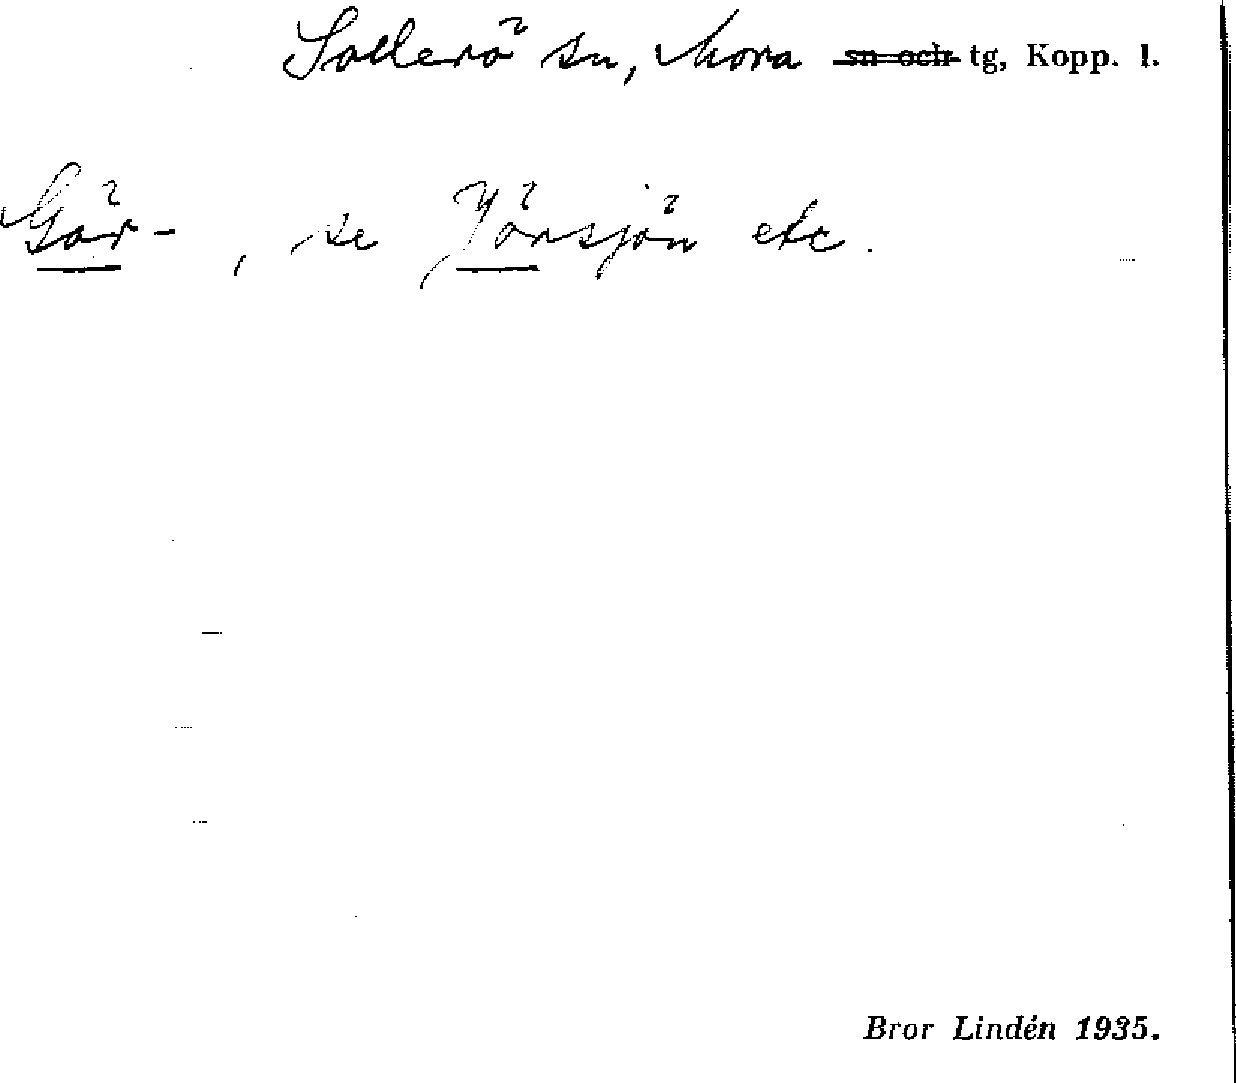 Sollerö sn, Mora sn och tg, Kopp. l.
Gör-, se Jörsjön etc.
Bror Lindén 1935.